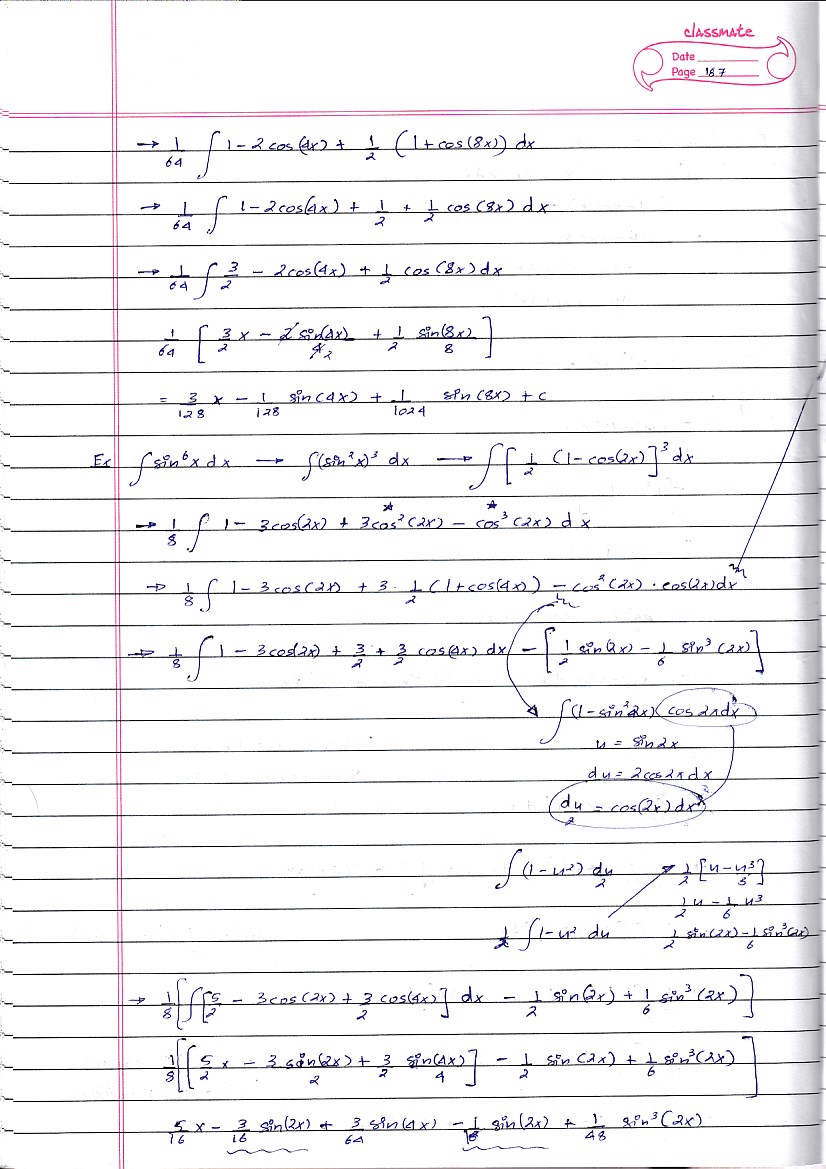 classmate
Date
Page 187
→ 1/64 ∫ 1 - 2 cos(4x) + 1/2 (1 + cos(8x)) dx
→ 1/64 ∫ 1 - 2cos(4x) + 1/2 + 1/2 cos(8x) dx
→ 1/64 ∫ 3/2 - 2cos(4x) + 1/2 cos(8x) dx
1/64 [ 3/2 x - 2 sin(4x)/4 2 + 1/2 sin(8x)/8 ]
= 3/128 x - 1/128 sin(4x) + 1/1024 sin(8x) + c
Ex ∫ sin⁶x dx → ∫(sin²x)³ dx → ∫ [ 1/2 (1 - cos(2x) ]³ dx
→ 1/8 ∫ 1 - 3cos(2x) + 3cos²(2x) - cos³(2x) dx
→ 1/8 ∫ 1 - 3cos(2x) + 3 · 1/2 (1 + cos(4x)) - cos²(2x) · cos(2x)dx
→ 1/8 ∫ 1 - 3cos(2x) + 3/2 + 3/2 cos(4x) dx - [ 1/2 sin(2x) - 1/6 sin³(2x) ]
∫(1 - sin²2x)(cos2xdx
u = sin2x
du = 2cos2x dx
du/2 = cos(2x)dx
∫(1 - u²) du/2 1/2 [u - u³/3]
1/2 u - 1/6 u³
1/2 ∫ 1 - u² du 1/2 sin(2x) - 1/6 sin³(2x)
→ 1/8 [ ∫ [ 5/2 - 3cos(2x) + 3/2 cos(4x) ] dx - 1/2 sin(2x) + 1/6 sin³(2x) ]
1/8 [ [ 5/2 x - 3 sin(2x)/2 + 3/2 sin(4x)/4 ] - 1/2 sin(2x) + 1/6 sin³(2x) ]
5/16 x - 3/16 sin(2x) + 3/64 sin(4x) - 1/16 sin(2x) + 1/48 sin³(2x)